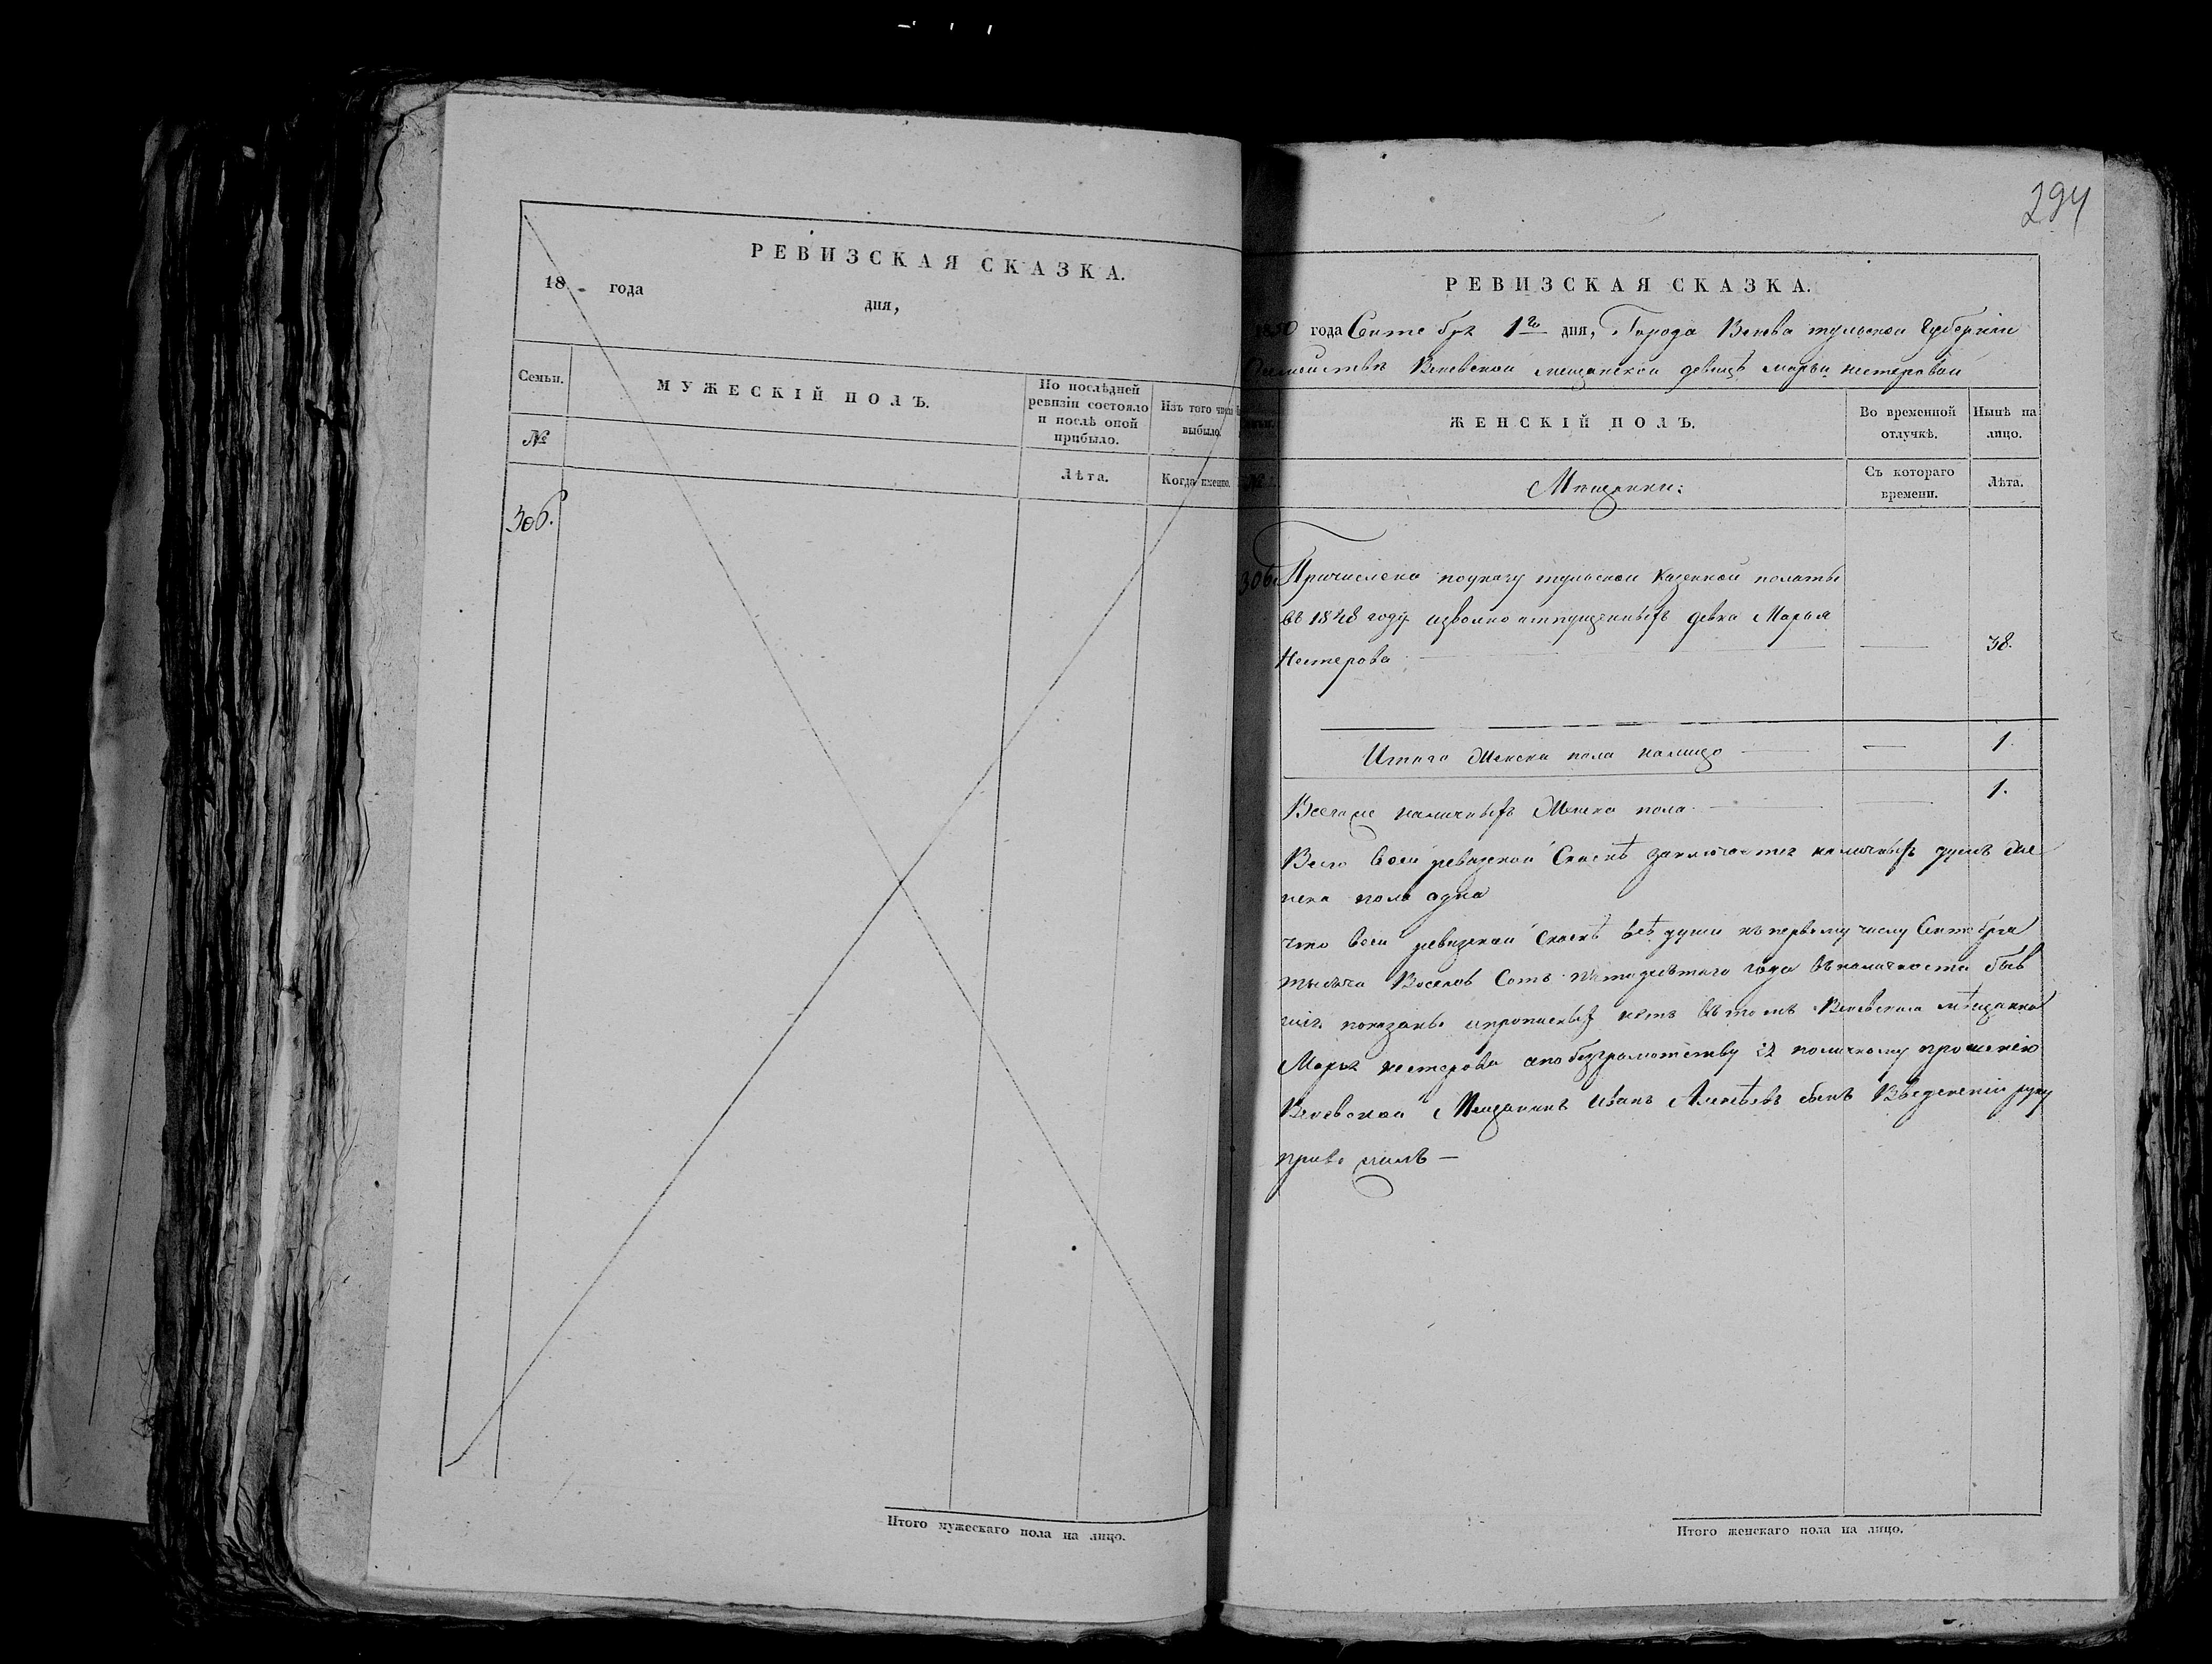 РЕВИЗСКАЯ СКАЗКА.
18 года дня,
Семьи.
МУЖЕСКІЙ ПОЛЪ.
По послѣдней ревизіи состояло и послѣ оной прибыло.
Изъ того числа выбыло.
№
Лѣта.
Когда именно.
306.
Итого мужескаго пола на лицо.
294
РЕВИЗСКАЯ СКАЗКА.
1850 года Сентебря 1го дня, Города Венева тульской Губерніи
Веневской мещанской девицѣ марьи нестеровой
ЖЕНСКІЙ ПОЛЪ.
Во временной отлучкѣ.
Нынѣ на лицо.
Мѣщанки:
Съ котораго времени.
Лѣта.
306. Причислена поуказу тульской Казенной полаты
въ 1848 году изволно отпущенныхъ девка Марья
Нестерова — 38.
Итого Женска пола налицо — 1.
Всего наличныхъ Женска пола — 1.
Всего всей ревизской Сказкѣ заключается наличныхъ душъ Же
нска пола одна
что всей ревизской Сказкѣ всѣ души къ первому числу Сентебря
тысеча Восемь Сотъ пятидесятаго года въ наличности быв
шія показаны ипрописныхъ нетъ вътомъ Веневская мѣщанка
Марья нестерова апо безграмотству ея поличному прошенію
Веневской Мещанинъ Иванъ Алексѣевъ сынъ Введенскій руку
приложилъ —
Итого женскаго пола на лицо.